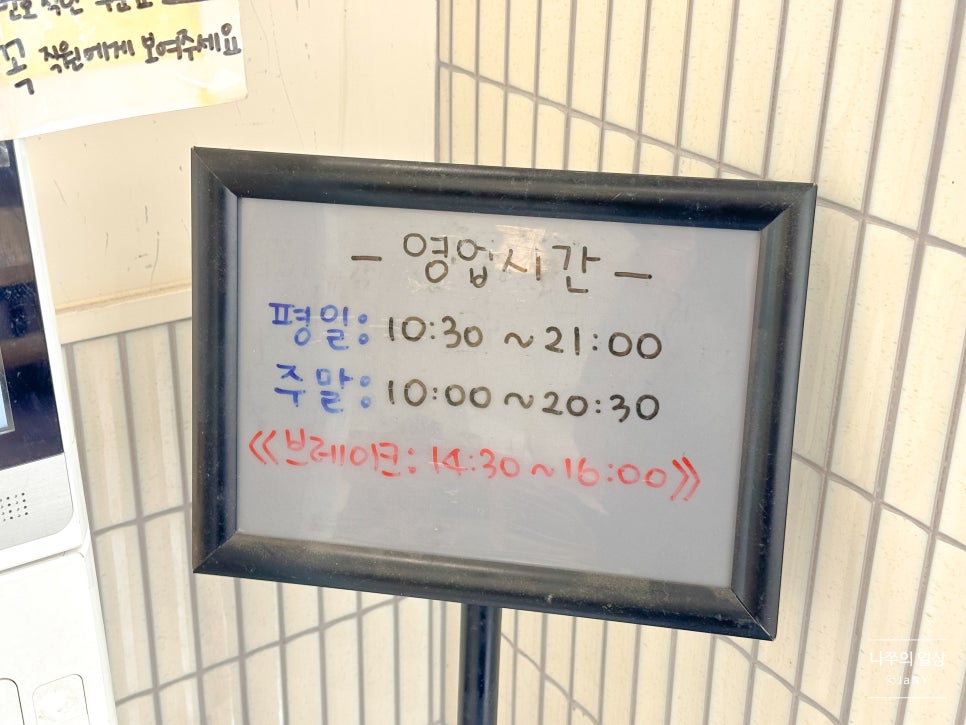 꼭 직원에게 보여주세요
- 영업시간 -
평일: 10:30 ~ 21:00
주말: 10:00 ~ 20:30
《브레이크: 14:30 ~ 16:00》
나쭈의 일상